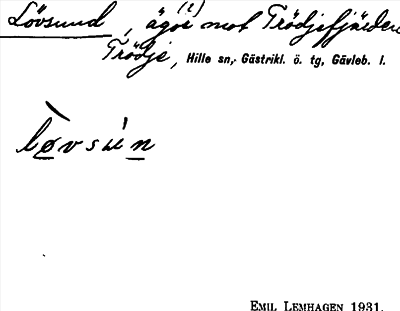 Lövsund, ägor (?) mot Trödjefjärden
Trödje, Hille sn, Gästrikl. ö. tg, Gävleb. l.
lø̲̀vsú̲n̲
EMIL LEMHAGEN 1931.